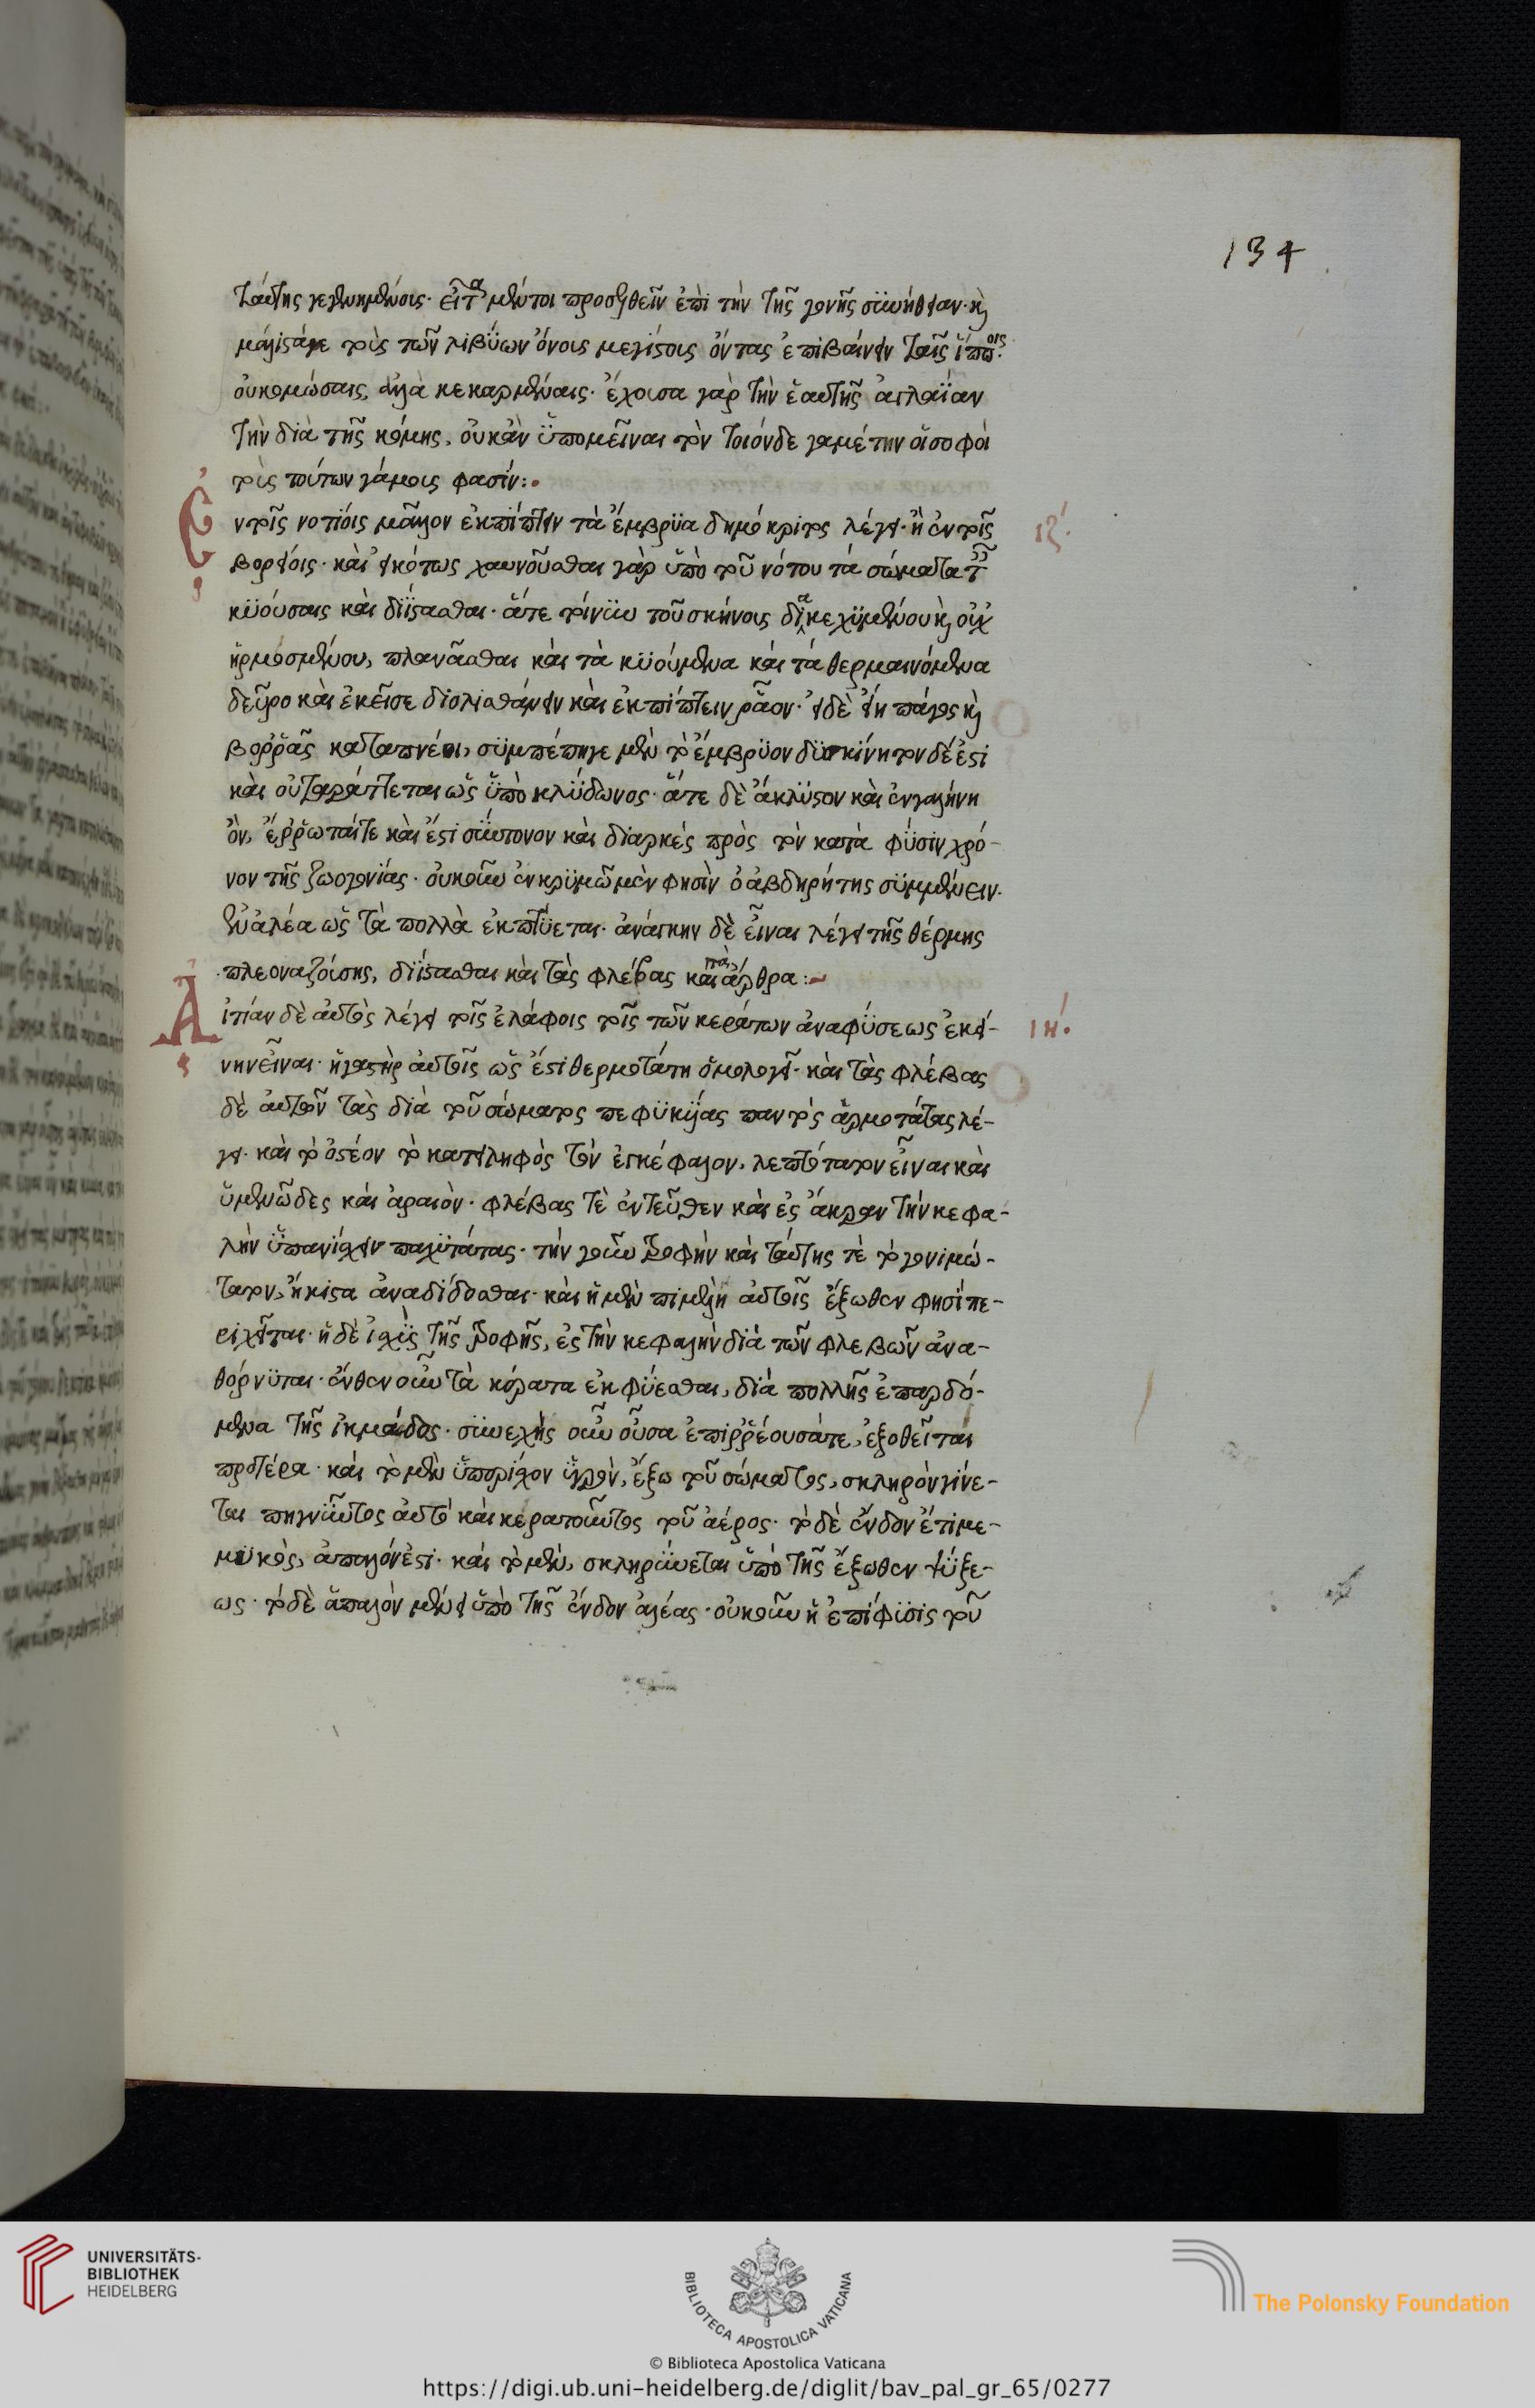 134
ταύτης γεγενημένους· εἶτα μέντοι προσελθεῖν ἐπὶ τὴν τῆς γονῆς συνήθειαν· καὶ
μάλιστά γε τοὺς τῶν λιβύων ὄνους μεγίστους ὄντας ἐπιβαίνειν ταῖς ἵπποις
οὐ κομώσαις, ἀλλὰ κεκαρμέναις· ἔχουσα γὰρ τὴν ἑαυτῆς ἀγλαΐαν
τὴν διὰ τῆς κόμης, οὐκ ἂν ὑπομεῖναι τὸν τοιόνδε γαμέτην οἱ σοφοὶ
τοὺς τούτων γάμους φασίν:
Ἐν τοῖς νοτίοις μᾶλλον ἐκπίπτειν τὰ ἔμβρυα δημόκριτος λέγει· ἢ ἐν τοῖς
ιζ΄
βορείοις· καὶ εἰκότως χαυνοῦσθαι γὰρ ὑπὸ τοῦ νότου τὰ σώματα τῶν
κυούσαις καὶ διΐστασθαι· ἅτε τοίνυν τοῦ σκήνους διακεχυμένου καὶ οὐχ
ἡρμοσμένου, πλανᾶσθαι καὶ τὰ κυούμενα καὶ τὰ θερμαινόμενα
δεῦρο καὶ ἐκεῖσε διολισθάνειν καὶ ἐκπίπτειν ῥᾷον· εἰ δὲ εἴη πάγος καὶ
βορρᾶς καταπνέοι, συμπέπηγε μὲν τὸ ἔμβρυον δυσκίνητον δέ ἐστι
καὶ οὐ ταράττεται ὡς ὑπὸ κλύδωνος· ἅτε δὲ ἄκλυστον καὶ ἐν γαλήνῃ
ὄν, ἔρρωταί τε καὶ ἔστι σύντονον καὶ διαρκὲς πρὸς τὸν κατὰ φύσιν χρό-
νον τῆς ζωογονίας· οὐκοῦν ἐν κρυμῶ μὲν φησὶν ὁ ἀβδηρίτης συμμένειν·
ἐν ἀλέα ὡς τὰ πολλὰ ἐκπτύεται· ἀνάγκην δὲ εἶναι λέγει τῆς θέρμης
πλεοναζούσης, διΐστασθαι καὶ τὰς φλέβας καὶ τὰ ἄρθρα:
Αἰτίαν δὲ αὐτὸς λέγει τοῖς ἐλάφοις τοῖς τῶν κεράτων ἀναφύσεως ἐκεί-
ιη΄
νην εἶναι· ἡ γαστὴρ αὐτοῖς ὡς ἔστι θερμοτάτη ὁμολογεῖ· καὶ τὰς φλέβας
δὲ αὐτῶν τὰς διὰ τοῦ σώματος πεφυκυίας παντὸς ἀρμοτάτας λέ-
γει· καὶ τὸ ὀστέον τὸ κατειληφὸς τὸν ἐγκέφαλον, λεπτότατον εἶναι καὶ
ὑμενῶδες καὶ ἀραιὸν· φλέβας τὲ ἐντεῦθεν καὶ ἐς ἄκραν τὴν κεφα-
λὴν ὑπανίσχειν παχυτάτας· τὴν γοῦν τροφὴν καὶ ταύτης τὲ τὸ γονιμώ-
τατον, ἥκιστα ἀναδίδοσθαι· καὶ ἡ μὲν πιμελὴ αὐτοῖς ἔξωθεν φησὶ πε-
ριχεῖται· ἡ δὲ ἰσχὺς τῆς τροφῆς, ἐς τὴν κεφαλὴν διὰ τῶν φλεβῶν ἀνα-
θόρνυται· ἔνθεν οὖν τὰ κέρατα ἐκφύεσθαι, διὰ πολλῆς ἐπαρδό-
μενα τῆς ἰκμάδος· συνεχὴς οὖν οὖσα ἐπιρρέουσά τε, ἐξωθεῖ τὰ
πρότερα· καὶ τὸ μὲν ὑπερίσχον ὑγρὸν, ἔξω τοῦ σώματος, σκληρὸν γίνε-
ται πηγνύντος αὐτὸ καὶ κερατοῦντος τοῦ ἀέρος· τὸ δὲ ἔνδον ἔτι με-
μυκὸς, ἁπαλόν ἐστι· καὶ τὸ μὲν, σκληρύνεται ὑπὸ τῆς ἔξωθεν ψύξε-
ως· τὸ δὲ ἁπαλὸν μένει ὑπὸ τῆς ἔνδον ἀλέας· οὐκοῦν ἡ ἐπίφυσις τοῦ
UNIVERSITÄTS-
BIBLIOTHEK
HEIDELBERG
BIBLIOTECA APOSTOLICA VATICANA
The Polonsky Foundation
© Biblioteca Apostolica Vaticana
https://digi.ub.uni-heidelberg.de/diglit/bav_pal_gr_65/0277